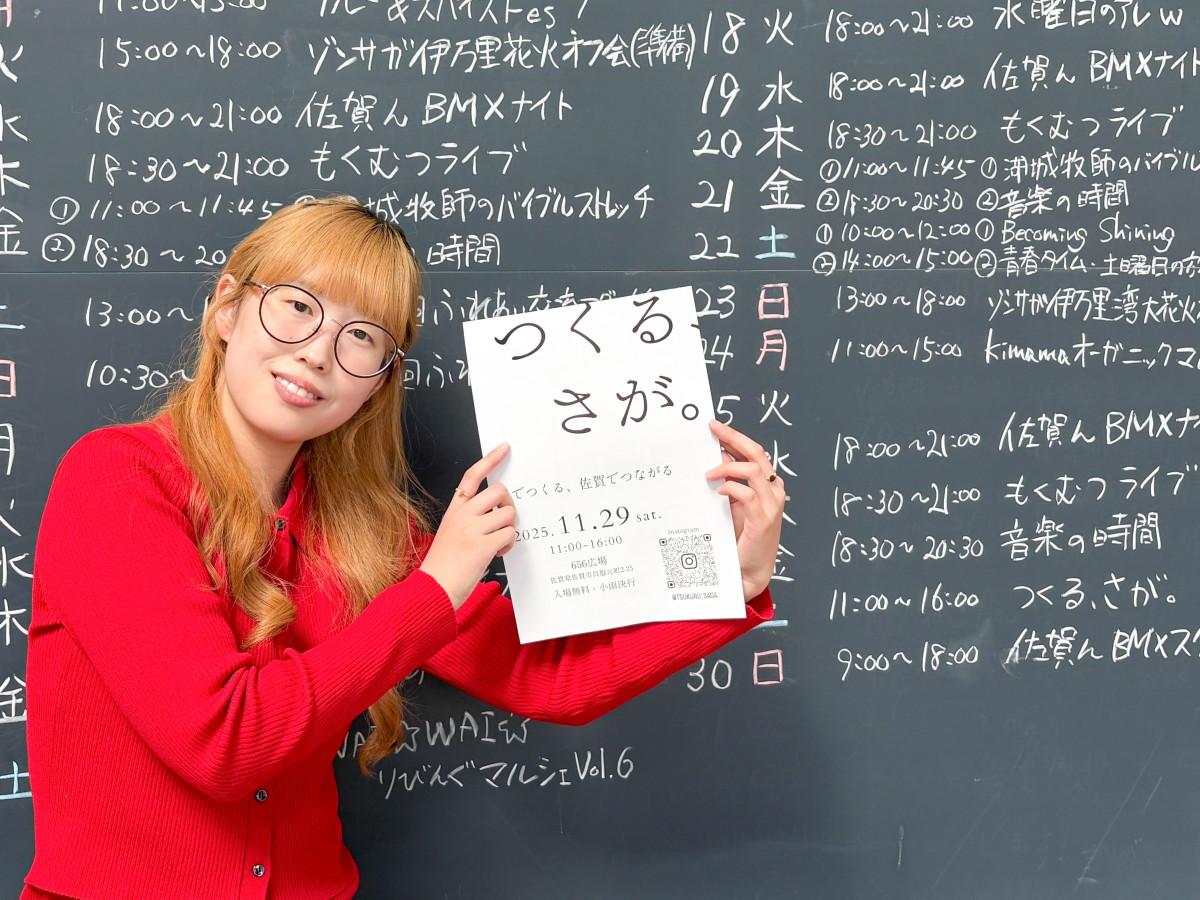 カレー&スパイスFes!
15:00〜18:00 ゾンサガ伊万里花火オフ会(準備)
18:00〜21:00 佐賀ん BMXナイト
18:30〜21:00 もくむつライブ
金 ①11:00〜11:45 城牧師のバイブルストレッチ
②18:30〜20 時間
13:00〜
10:30〜
水
木
金
土
WAI☆
りびんぐマルシェVol.6
18 火 18:00〜21:00 水曜日のアレw
19 水 18:00〜21:00 佐賀ん BMXナイト
20 木 18:30〜21:00 もくむつライブ
21 金 ①11:00〜11:45 ①湖城牧師のバイブル
②18:30〜20:30 ②音楽の時間
22 土 ①10:00〜12:00 ①Becoming Shining
②14:00〜15:00 ②青春タイム・土曜日の
23 日 13:00〜18:00 ゾンサガ伊万里湾大花火
24 月 11:00〜15:00 kimamaオーガニックマ
5 火
18:00〜21:00 佐賀ん BMXナ
18:30〜21:00 もくむつライブ
18:30〜20:30 音楽の時間
11:00〜16:00 つくる、さが。
30 日 9:00〜18:00 佐賀ん BMXスク
つくる、
さが。
でつくる、佐賀でつながる
2025. 11.29 sat.
11:00-16:00
656広場
佐賀県佐賀市呉服元町2-25
入場無料・小雨決行
Instagram
@TSUKURU_SAGA